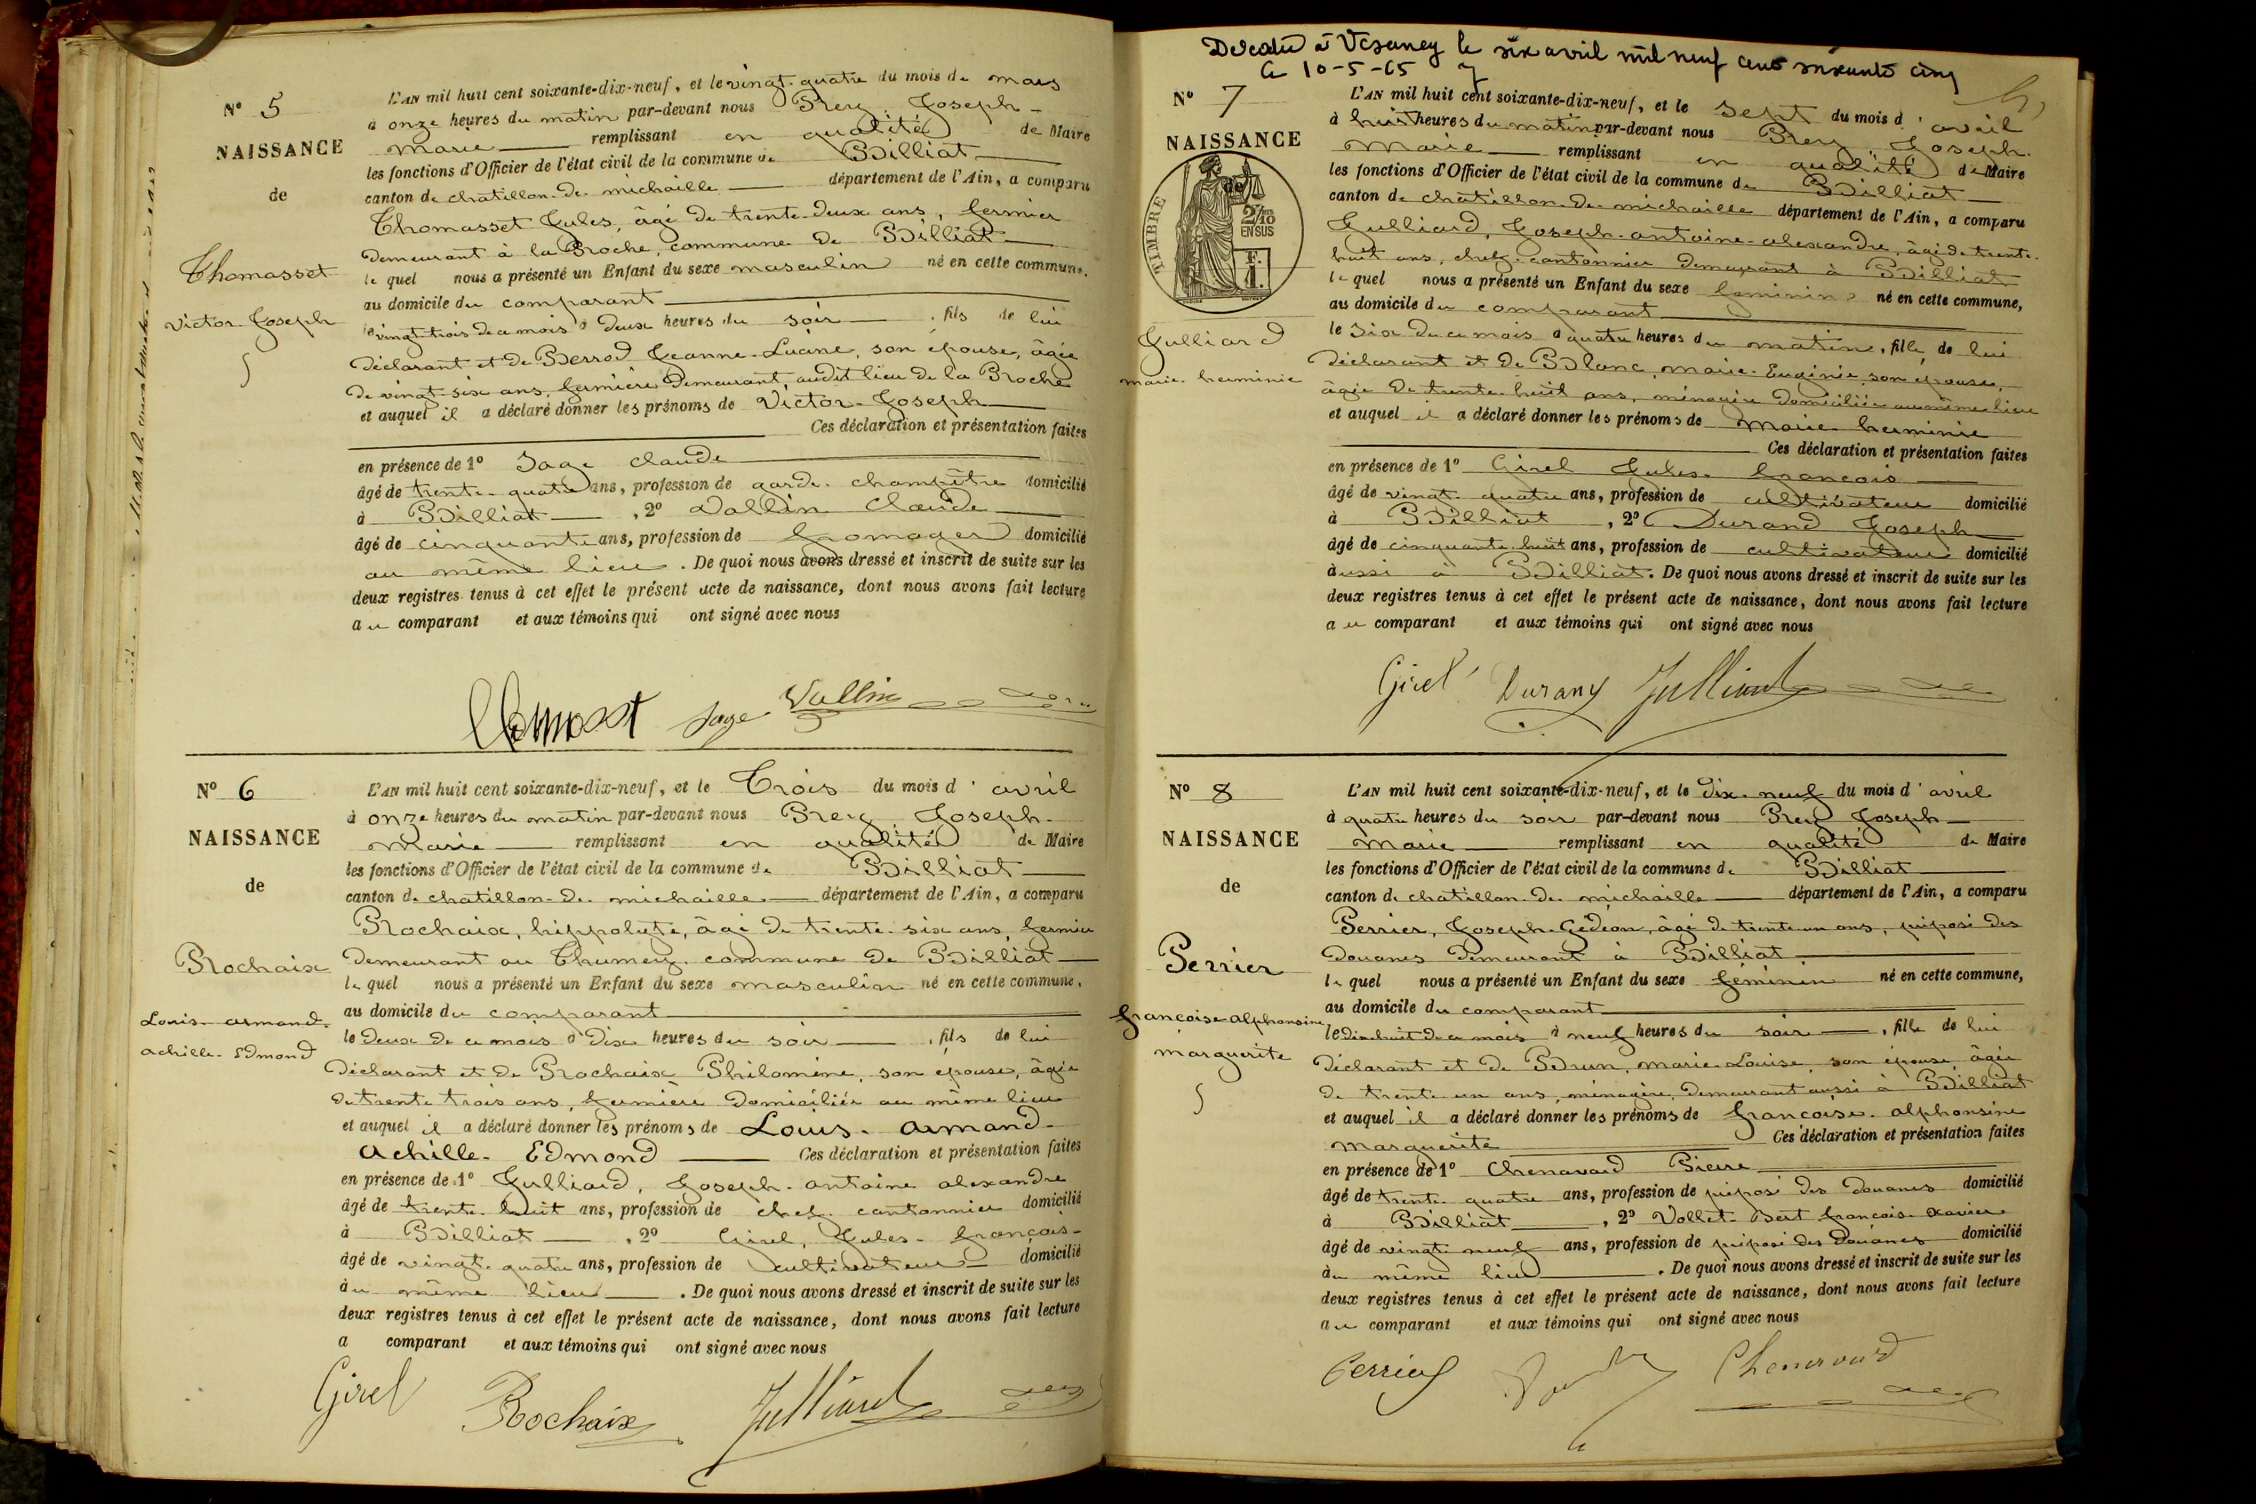 N° 5
NAISSANCE
de
Thomasset
Victor-Joseph
L'AN mil huit cent soixante-dix-neuf, et le vingt-quatre du mois de mars
à onze heures du matin par-devant nous Prey, Joseph-
Marie remplissant en qualité de Maire
les fonctions d'Officier de l'état civil de la commune de Billiat
canton de chatillon-de-michaille département de l'Ain, a comparu
Thomasset Jules, âgé de trente-deux ans, fermier
demeurant à la Roche, commune de Billiat
lequel nous a présenté un Enfant du sexe masculin né en cette commune,
au domicile du comparant
le vingt trois de ce mois à deux heures du soir, fils de lui
déclarant et de Perrod Jeanne-Lucine, son épouse, âgée
de vingt-six ans, fermière demeurant, audit lieu de la Roche
et auquel il a déclaré donner les prénoms de Victor-Joseph
Ces déclaration et présentation faites
en présence de 1° Sage Claude
âgé de trente-quatre ans, profession de garde-champêtre domicilié
à Billiat, 2° Vallin Claude
âgé de cinquante ans, profession de fromager domicilié
au même lieu. De quoi nous avons dressé et inscrit de suite sur les
deux registres tenus à cet effet le présent acte de naissance, dont nous avons fait lecture
au comparant et aux témoins qui ont signé avec nous
Thomasset Sage Vallin
N° 6
NAISSANCE
de
Rochaix
Louis-armand-
achille-Edmond
L'AN mil huit cent soixante-dix-neuf, et le Trois du mois d'avril
à onze heures du matin par-devant nous Prey, Joseph-
Marie remplissant en qualité de Maire
les fonctions d'Officier de l'état civil de la commune de Billiat
canton de chatillon-de-michaille département de l'Ain, a comparu
Rochaix, hippolyte, âgé de trente-six ans, fermier
demeurant au Thumey, commune de Billiat
lequel nous a présenté un Enfant du sexe masculin né en cette commune,
au domicile du comparant
le deux de ce mois à dix heures du soir, fils de lui
déclarant et de Rochaix Philomine, son épouse, âgée
de trente trois ans, fermière domiciliée au même lieu
et auquel il a déclaré donner les prénoms de Louis-armand-
achille-Edmond Ces déclaration et présentation faites
en présence de 1° Julliard, Joseph-antoine alexandre
âgé de trente-huit ans, profession de chef-cantonnier domicilié
à Billiat, 2° Girel, Jules-françois-
âgé de vingt-quatre ans, profession de cultivateur domicilié
au même lieu. De quoi nous avons dressé et inscrit de suite sur les
deux registres tenus à cet effet le présent acte de naissance, dont nous avons fait lecture
a comparant et aux témoins qui ont signé avec nous
Girel Rochaix Julliard
Décédée à Vesancy le six avril mil neuf cent soixante cinq
le 10-5-65
N° 7
NAISSANCE
de
TIMBRE
2/10
EN SUS
F.
1.
Julliard
marie-herminie
L'AN mil huit cent soixante-dix-neuf, et le sept du mois d'avril
à huit heures du matin par-devant nous Prey, Joseph-
Marie remplissant en qualité de Maire
les fonctions d'Officier de l'état civil de la commune de Billiat
canton de chatillon-de-michaille département de l'Ain, a comparu
Julliard, Joseph-antoine-alexandre, âgé de trente-
huit ans, chef-cantonnier demeurant à Billiat
lequel nous a présenté un Enfant du sexe feminin né en cette commune,
au domicile du comparant
le six de ce mois à quatre heures du matin, fille de lui
déclarant et de Blanc, marie-Euginie, son épouse,
âgée de trente-huit ans, ménagère domiciliée au même lieu
et auquel il a déclaré donner les prénoms de marie-herminie
Ces déclaration et présentation faites
en présence de 1° Girel Jules-françois
âgé de vingt-quatre ans, profession de cultivateur domicilié
à Billiat, 2° Durand Joseph
âgé de cinquante-huit ans, profession de cultivateur domicilié
aussi à Billiat. De quoi nous avons dressé et inscrit de suite sur les
deux registres tenus à cet effet le présent acte de naissance, dont nous avons fait lecture
au comparant et aux témoins qui ont signé avec nous
Girel Durand Julliard
N° 8
NAISSANCE
de
Perrier
françoise-alphonsine
marguerite
L'AN mil huit cent soixante-dix-neuf, et le dix-neuf du mois d'avril
à quatre heures du soir par-devant nous Prey Joseph-
Marie remplissant en qualité de Maire
les fonctions d'Officier de l'état civil de la commune de Billiat
canton de chatillon-de-michaille département de l'Ain, a comparu
Perrier, Joseph-Gédéon, âgé de trente un ans, préposé des
Douanes demeurant à Billiat
lequel nous a présenté un Enfant du sexe féminin né en cette commune,
au domicile du comparant
le dix huit de ce mois à neuf heures du soir, fille de lui
déclarant et de Brun, marie-Louise, son épouse, âgée
de trente un ans, ménagère, demeurant aussi à Billiat
et auquel il a déclaré donner les prénoms de françoise-alphonsine
marguerite Ces déclaration et présentation faites
en présence de 1° Chenavard Pierre
âgé de trente-quatre ans, profession de préposé des douanes domicilié
à Billiat, 2° Vollet-Bert françois-xavier
âgé de vingt-neuf ans, profession de préposé des Douanes domicilié
au même lieu. De quoi nous avons dressé et inscrit de suite sur les
deux registres tenus à cet effet le présent acte de naissance, dont nous avons fait lecture
au comparant et aux témoins qui ont signé avec nous
Perrier Chenavard